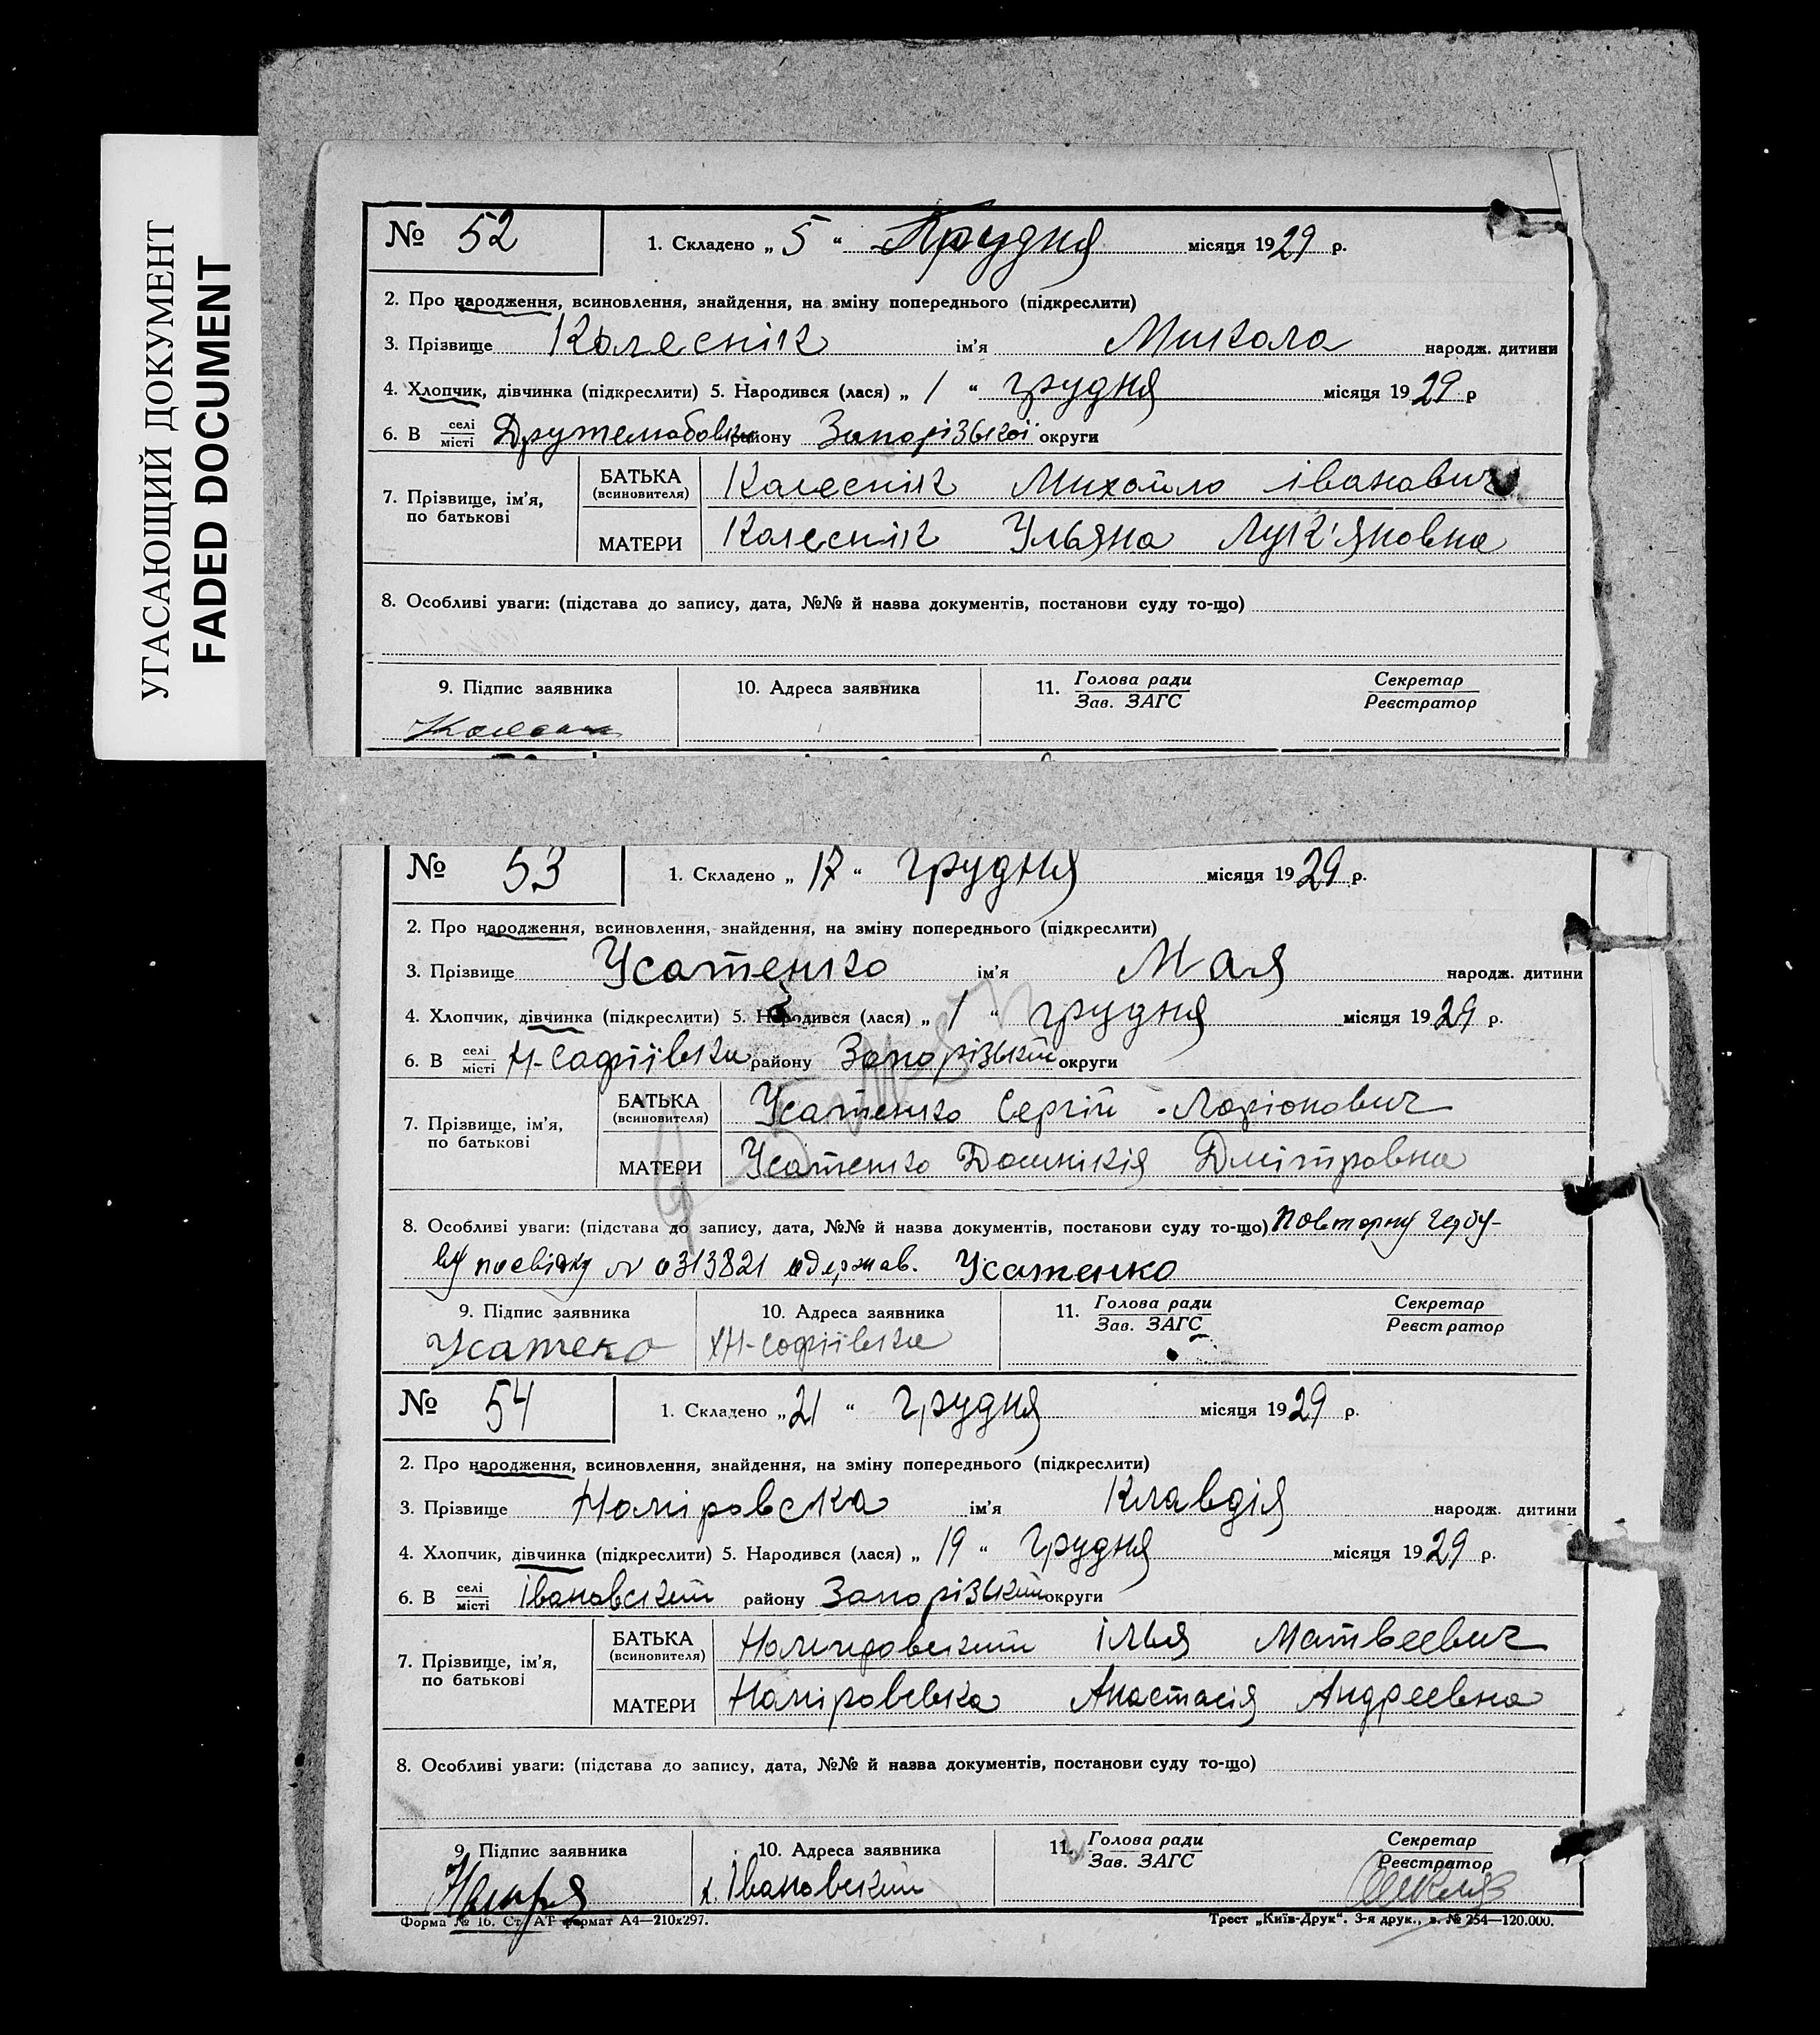 УГАСАЮЩИЙ ДОКУМЕНТ
FADED DOCUMENT
№ 52
1. Складено „ 5 “ Грудня місяця 1929 р.
2. Про народження, всиновлення, знайдення, на зміну попереднього (підкреслити)
3. Прізвище Колеснік ім’я Микола народж. дитини
4. Хлопчик, дівчинка (підкреслити) 5. Народився (лася) „ 1 “ грудня місяця 1929 р
6. В селі місті району Запорізької округи
7. Прізвище, ім’я, по батькові
БАТЬКА (всиновителя) Колеснік Михайло Іванович
МАТЕРИ Колеснік Ульяна Лук’яновна
8. Особливі уваги: (підстава до запису, дата, №№ й назва документів, постанови суду то-що)
9. Підпис заявника
10. Адреса заявника
11. Голова ради Зав. ЗАГС
Секретар Реєстратор
№ 53
1. Складено „ 17 “ грудня місяця 1929 р.
2. Про народження, всиновлення, знайдення, на зміну попереднього (підкреслити)
3. Прізвище Усатенко ім’я Мая народж. дитини
4. Хлопчик, дівчинка (підкреслити) 5. Народився (лася) „ 1 “ грудня місяця 1929 р.
6. В селі місті Н-Софіївки району Запорізький округи
7. Прізвище, ім’я, по батькові
БАТЬКА (всиновителя) Усатенко Сергій Ларіонович
МАТЕРИ Усатенко Домнікія Дмітровна
8. Особливі уваги: (підстава до запису, дата, №№ й назва документів, постанови суду то-що) Повторну гербу-
ву посвідку № 0313821 одержав. Усатенко
9. Підпис заявника Усатеко
10. Адреса заявника Н-Софіївка
11. Голова ради Зав. ЗАГС
Секретар Реєстратор
№ 54
1. Складено „ 21 “ грудня місяця 1929 р.
2. Про народження, всиновлення, знайдення, на зміну попереднього (підкреслити)
3. Прізвище Наміровска ім’я Клавдія народж. дитини
4. Хлопчик, дівчинка (підкреслити) 5. Народився (лася) „ 19 “ грудня місяця 1929 р.
6. В селі місті Івановский району Запорізький округи
7. Прізвище, ім’я, по батькові
БАТЬКА (всиновителя) Ілья Матвеевич
МАТЕРИ Наміровська Анастасія Андреевна
8. Особливі уваги: (підстава до запису, дата, №№ й назва документів, постанови суду то-що)
9. Підпис заявника
10. Адреса заявника х. Івановский
11. Голова ради Зав. ЗАГС
Секретар Реєстратор
Форма № 16. Ст. АТ формат А4—210х297.
Трест „Київ-Друк“. 3-я друк., з. № 254—120.000.